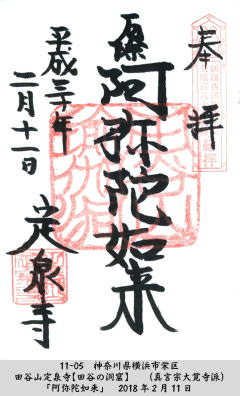 奉拝
阿弥陀如来
平成三十年
二月十一日
定泉寺
11-05　神奈川県横浜市栄区
田谷山定泉寺【田谷の洞窟】　（真言宗大覚寺派）
「阿弥陀如来」　2018年2月11日